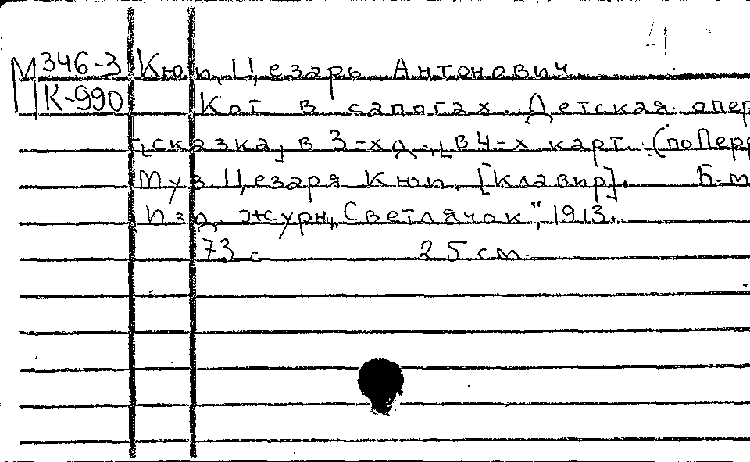 М 346-3 Кюи, Цезарь Антонович
К-990 Кот в сапогах. Детская опер
[сказка, в 3-х д., в 4-х карт. (по Перр
Муз. Цезаря Кюи. [Клавир]. Б-м
Изд. журн. "Светлячок", 1913.
73 с. 25 см.